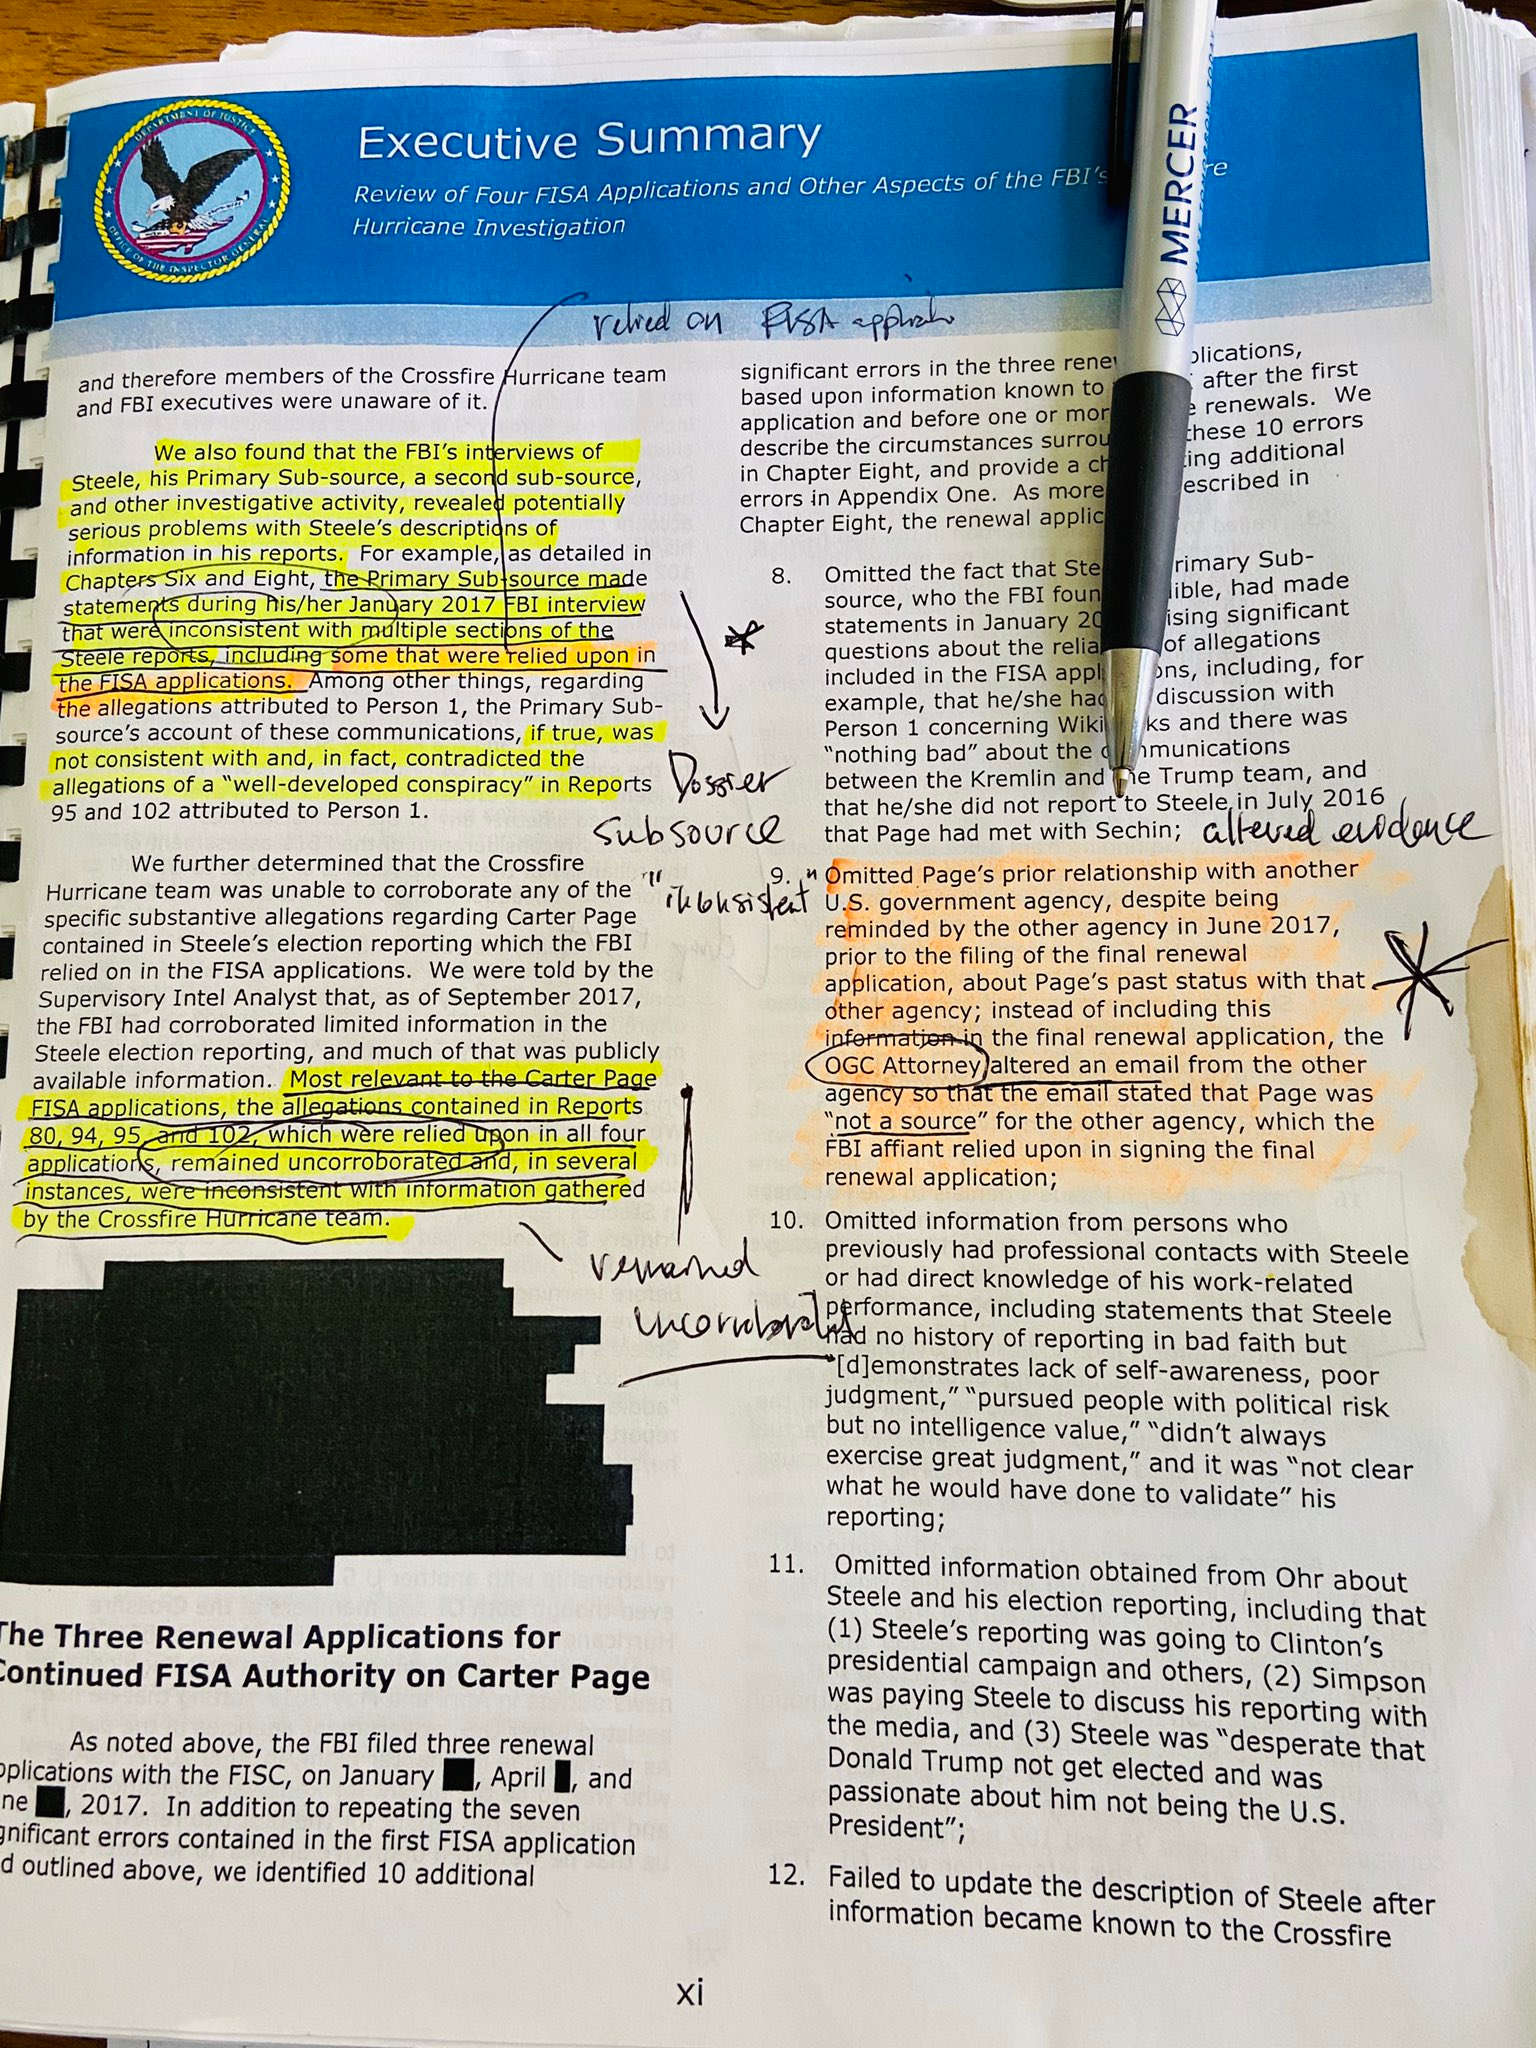 DEPARTMENT OF JUSTICE
OFFICE OF THE INSPECTOR GENERAL
Executive Summary
Review of Four FISA Applications and Other Aspects of the FBI's re
Hurricane Investigation
MERCER
relied on FISA
and therefore members of the Crossfire Hurricane team
and FBI executives were unaware of it.
We also found that the FBI's interviews of
Steele, his Primary Sub-source, a second sub-source,
and other investigative activity, revealed potentially
serious problems with Steele's descriptions of
information in his reports. For example, as detailed in
Chapters Six and Eight, the Primary Sub-source made
statements during his/her January 2017 FBI interview
that were inconsistent with multiple sections of the
Steele reports, including some that were relied upon in
the FISA applications. Among other things, regarding
the allegations attributed to Person 1, the Primary Sub-
source's account of these communications, if true, was
not consistent with and, in fact, contradicted the
allegations of a "well-developed conspiracy" in Reports
95 and 102 attributed to Person 1.
Dossier
subsource
"inconsistent"
We further determined that the Crossfire
Hurricane team was unable to corroborate any of the
specific substantive allegations regarding Carter Page
contained in Steele's election reporting which the FBI
relied on in the FISA applications. We were told by the
Supervisory Intel Analyst that, as of September 2017,
the FBI had corroborated limited information in the
Steele election reporting, and much of that was publicly
available information. Most relevant to the Carter Page
FISA applications, the allegations contained in Reports
80, 94, 95, and 102, which were relied upon in all four
applications, remained uncorroborated and, in several
instances, were inconsistent with information gathered
by the Crossfire Hurricane team.
remained
uncorroborated
The Three Renewal Applications for
Continued FISA Authority on Carter Page
As noted above, the FBI filed three renewal
pplications with the FISC, on January , April , and
ne , 2017. In addition to repeating the seven
gnificant errors contained in the first FISA application
d outlined above, we identified 10 additional
significant errors in the three rene plications,
based upon information known to after the first
application and before one or mor e renewals. We
describe the circumstances surrou these 10 errors
in Chapter Eight, and provide a ch ting additional
errors in Appendix One. As more escribed in
Chapter Eight, the renewal applic
8. Omitted the fact that Ste rimary Sub-
source, who the FBI foun ible, had made
statements in January 20 ising significant
questions about the relia of allegations
included in the FISA appl ons, including, for
example, that he/she had discussion with
Person 1 concerning Wiki ks and there was
"nothing bad" about the c mmunications
between the Kremlin and he Trump team, and
that he/she did not report to Steele in July 2016
that Page had met with Sechin; altered evidence
9. Omitted Page's prior relationship with another
U.S. government agency, despite being
reminded by the other agency in June 2017,
prior to the filing of the final renewal
application, about Page's past status with that
other agency; instead of including this
information in the final renewal application, the
OGC Attorney altered an email from the other
agency so that the email stated that Page was
"not a source" for the other agency, which the
FBI affiant relied upon in signing the final
renewal application;
10. Omitted information from persons who
previously had professional contacts with Steele
or had direct knowledge of his work-related
performance, including statements that Steele
had no history of reporting in bad faith but
"[d]emonstrates lack of self-awareness, poor
judgment," "pursued people with political risk
but no intelligence value," "didn't always
exercise great judgment," and it was "not clear
what he would have done to validate" his
reporting;
11. Omitted information obtained from Ohr about
Steele and his election reporting, including that
(1) Steele's reporting was going to Clinton's
presidential campaign and others, (2) Simpson
was paying Steele to discuss his reporting with
the media, and (3) Steele was "desperate that
Donald Trump not get elected and was
passionate about him not being the U.S.
President";
12. Failed to update the description of Steele after
information became known to the Crossfire
xi